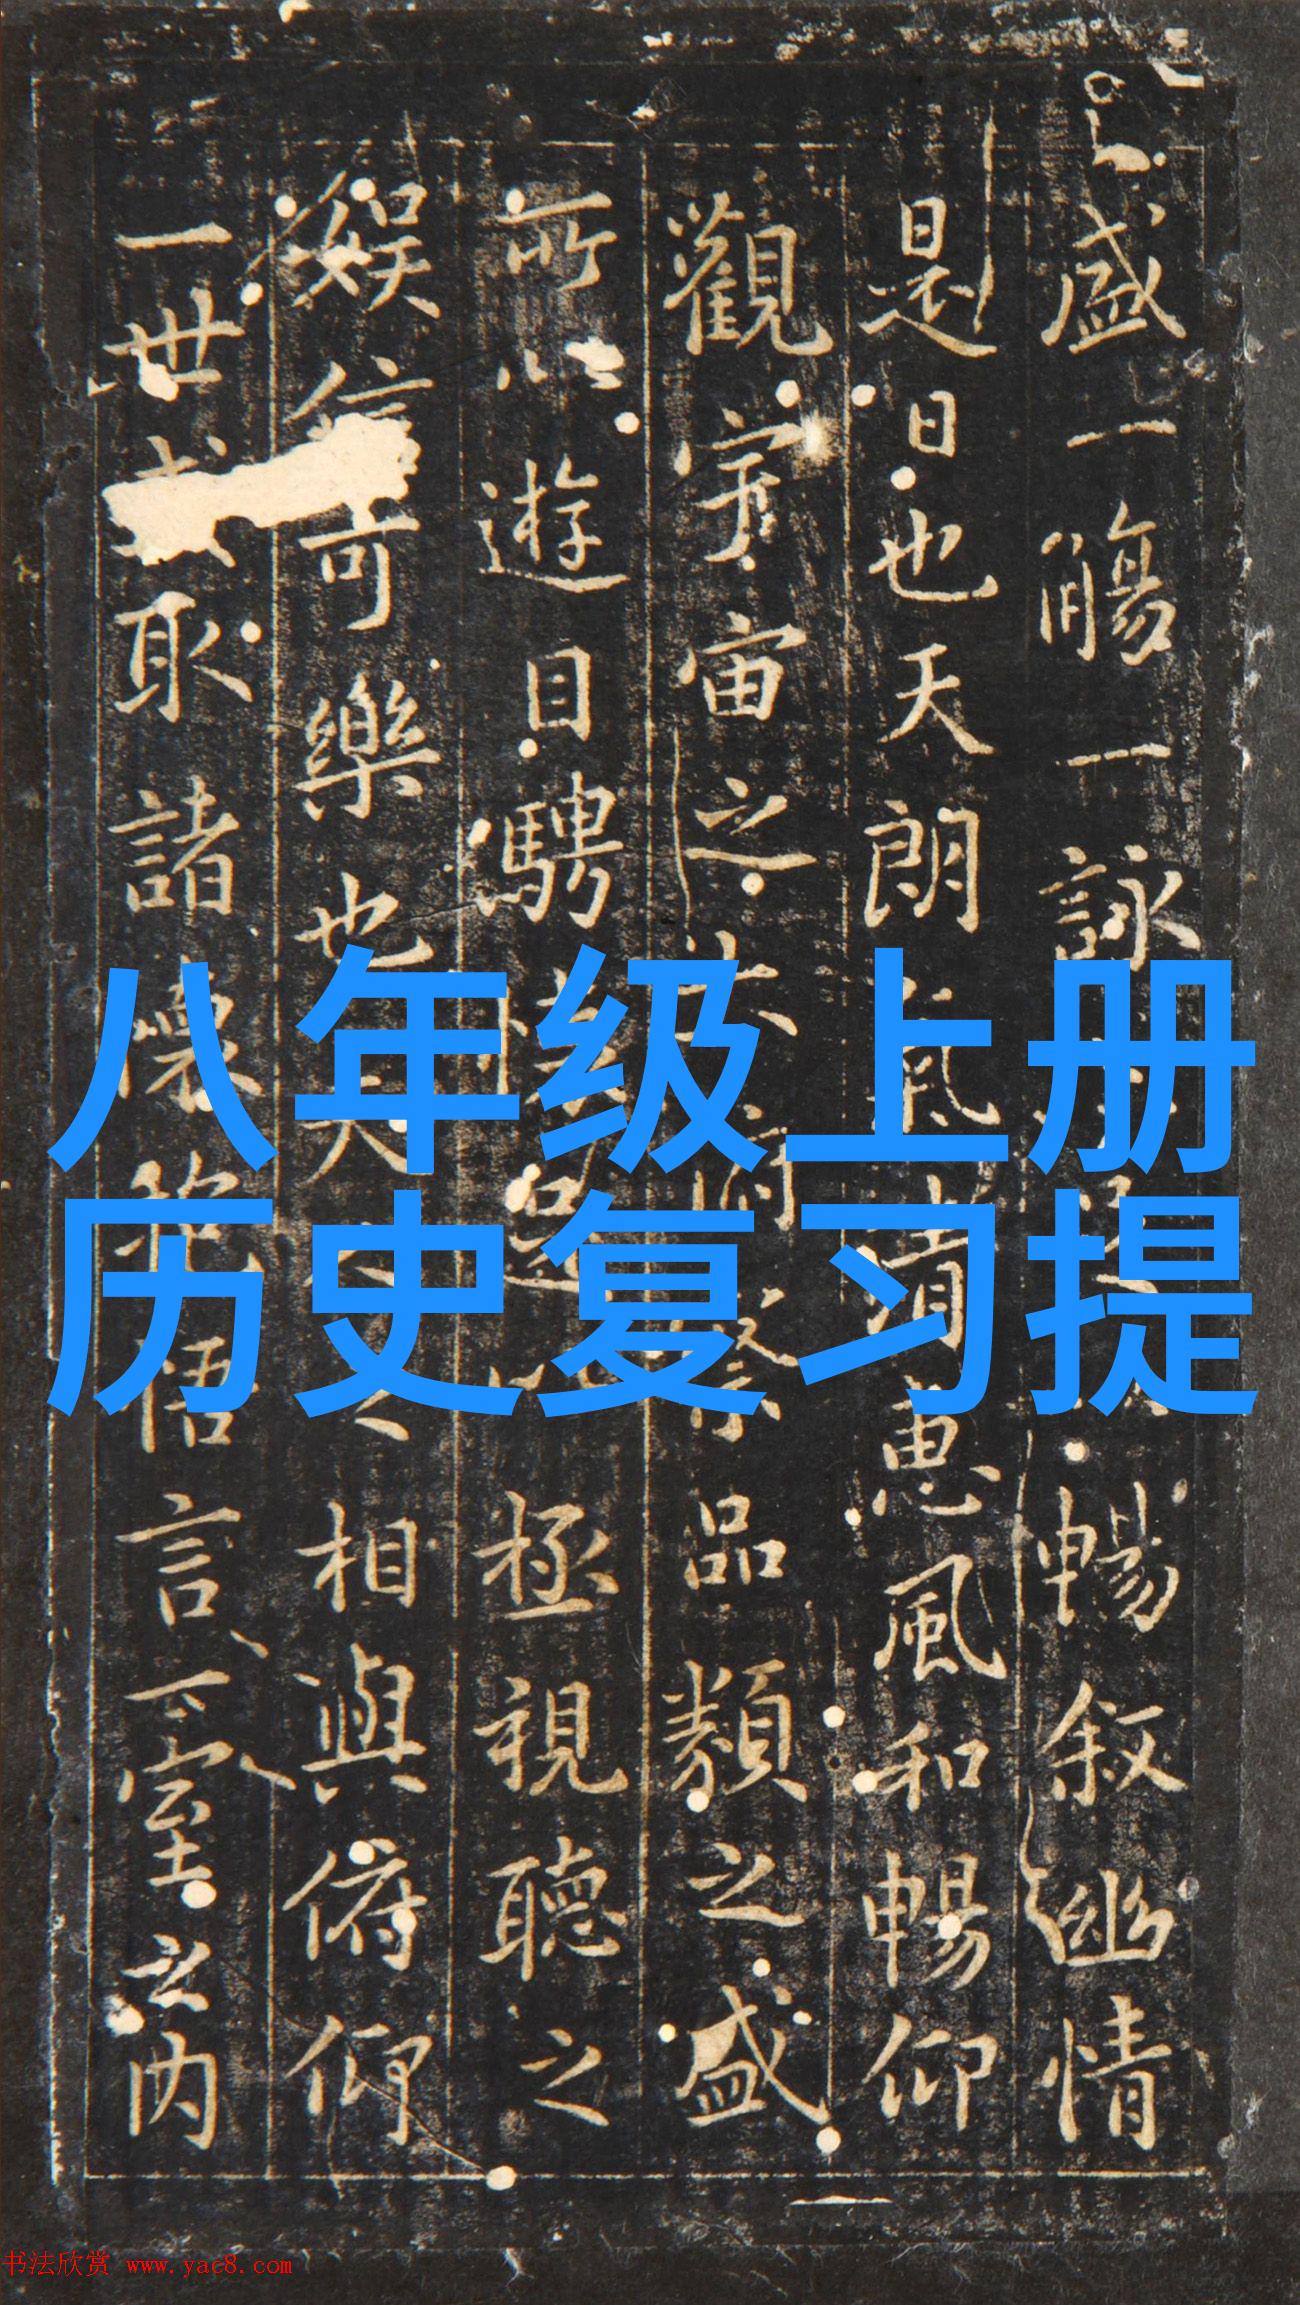 盛一觴一詠暢叙幽情
是日也天朗氣清惠風和暢仰
觀宇宙之大俯察品類之盛
所以遊目騁懷足以極視聽之
娛信可樂也夫人之相與俯仰
一世或取諸懷抱悟言一室之内
八年级上册
历史复习提
书法欣赏 www.yac8.com